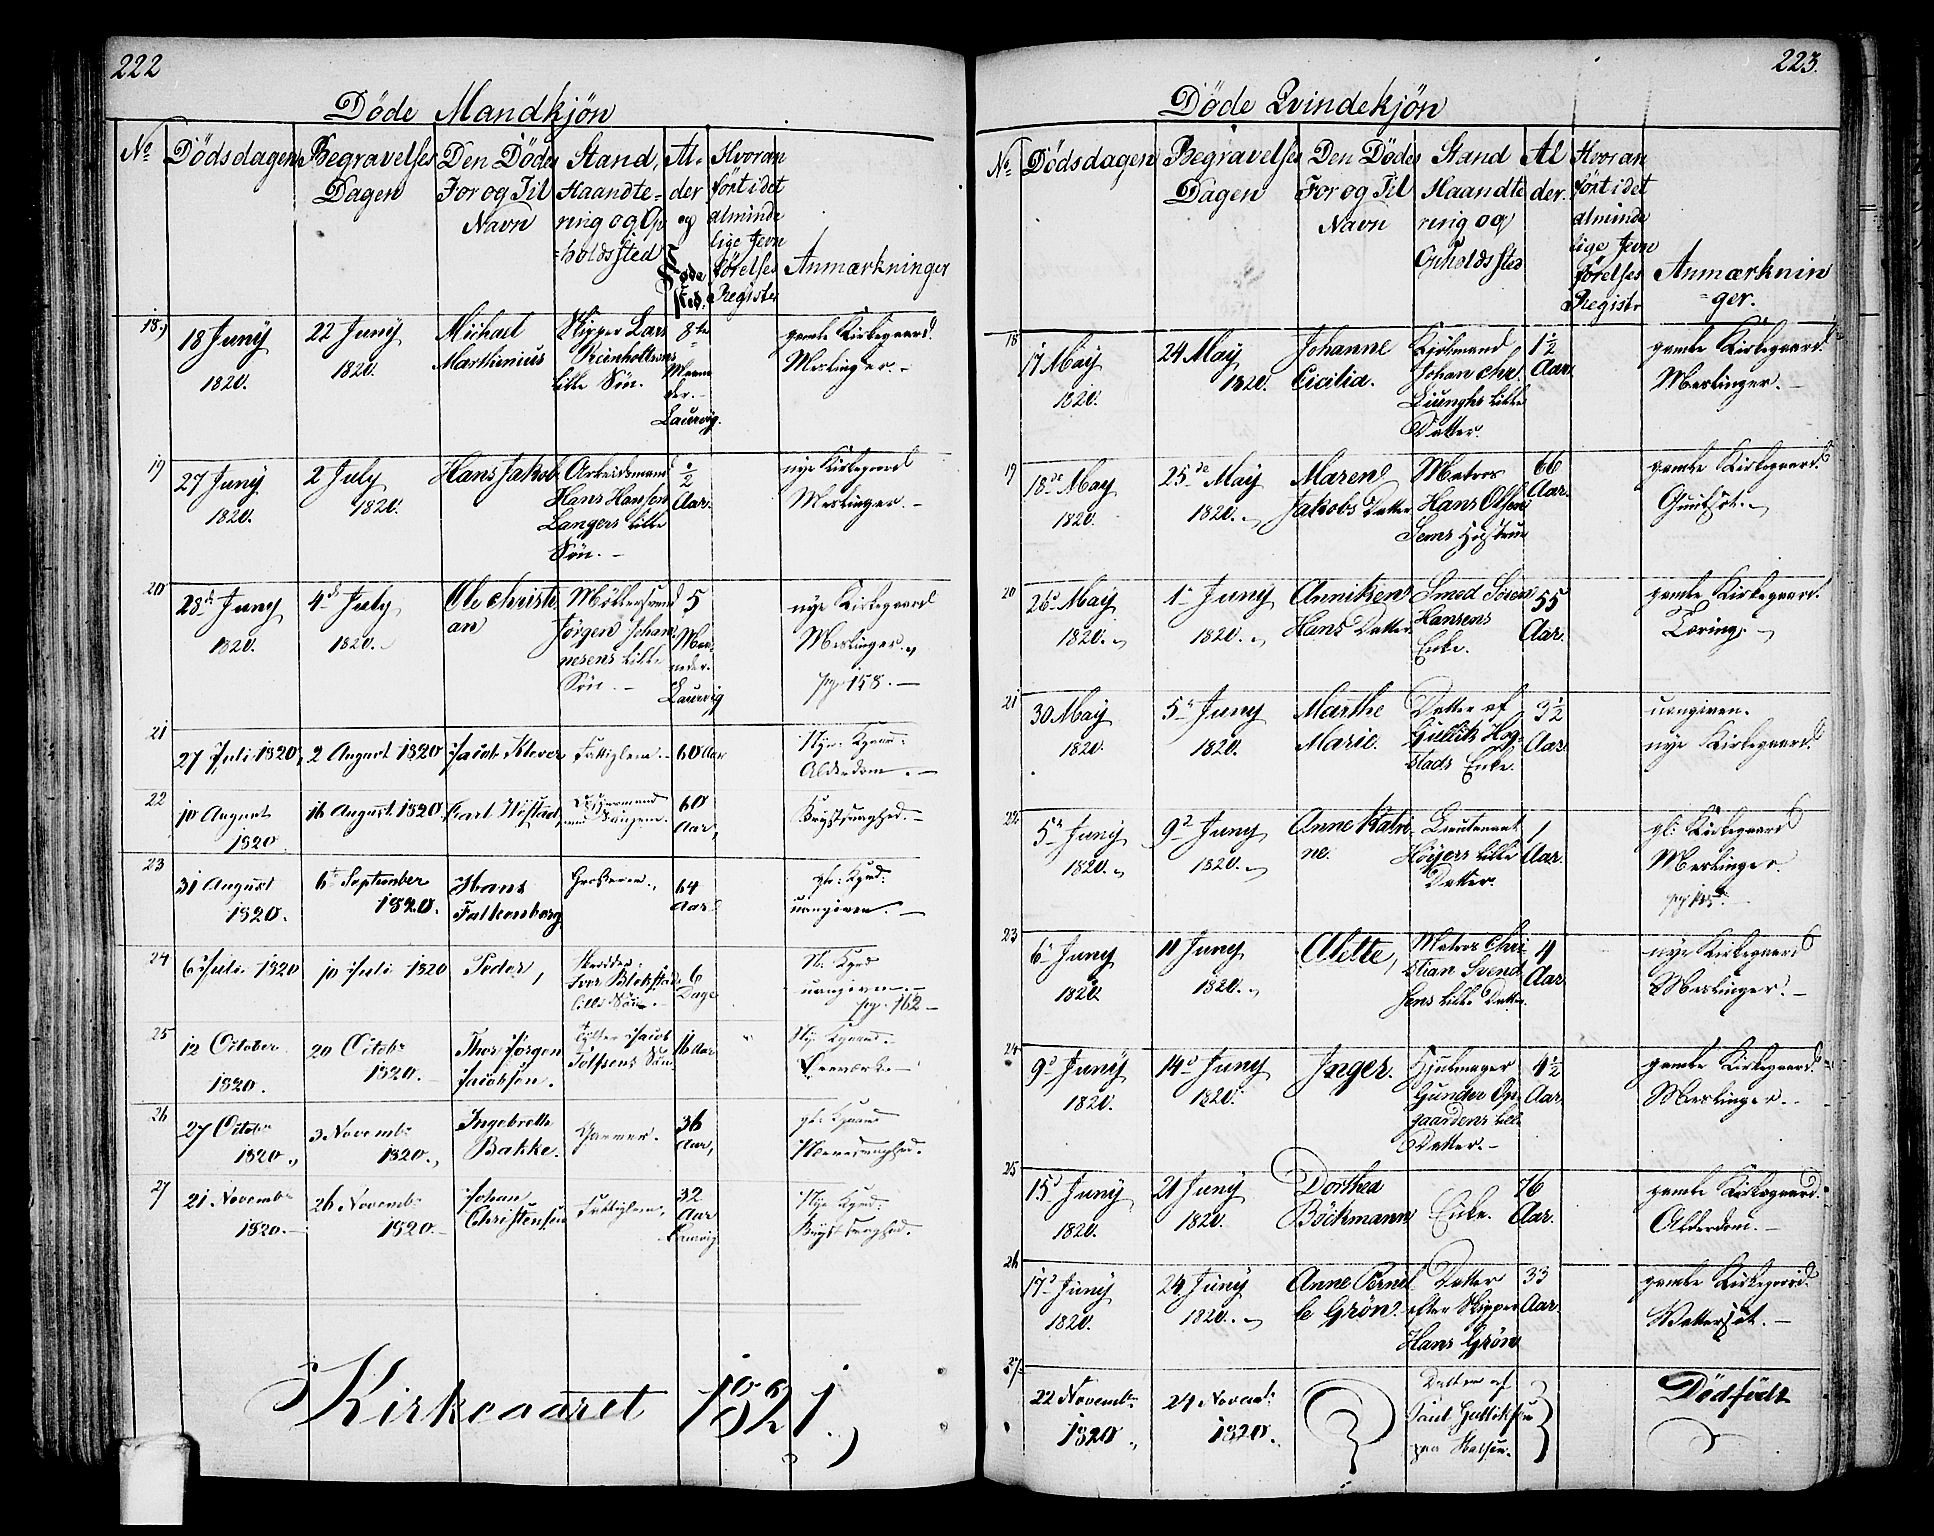 222
Döde Mandkjön
No
Dödsdagen
Begravelses
Dagen
Den Dödes
For og Til
Navn
Stand,
Haandte-
ring og Op
=holdssted
Al-
der
og
Föde
sted.
Hvoran
fört i det
alminde
lige Jevn
förelses
Register
Anmærkninger
18.)
18 Juny
1820.
22 Juny
1820.
Michael
Marthinius
Skipper Lars
Reinholtsens
lille Sön.
8te
Maane
der.
Laurvig.
gamle Kirkegaard.
Meslinger.
19
27 Juny
1820.
2 July
1820.
Hans Jakob
Arbeidsmand
Hans Hansen
Langers lille
Sön.
1/2
Aar.
nye Kirkegaard
Meslinger.
20
28d Juny
1820.
4d July
1820.
Ole Christi
an
Möllersvend
Jörgen Johan
nesens lille
Sön.
5
Maa-
neder.
Laurvig
nye Kirkegaard
Meslinger.
pg. 158.
21
27 Juli 1820,
2 August 1820
Jacob Klever
Fattiglem.
60 Aar
Nye Kgaar:
Alderdom.
22
10 August
1820.
16 August 1820,
Carl Höstad,
60
Aar,
Brystsvaghed.
23
31 August
1820.
6te September
1820.
Hans
Falkenborg
Grosserer.
64
Aar.
gl. Kgrd:
uangiven.
24
6 Juli 1820
10 Juli 1820
Peder,
Skredder
Iver Blokstad
lille Sön.
6
Dage
N. Kgrd
uangiven.
pg. 162
25
12 October
1820.
20 Octobr
1820.
Thor Jörgen
Jacobsen.
Jacob
Tolfsens Sön
16 Aar
Ny Kgaard.
26
27 Octobr
1820.
3 Novembr
1820.
Ingebreth
Bakke.
Garver.
36
Aar,
gl. Kgaard
Nervesvaghed.
27
21 Novembr
1820.
26 Novembr
1820.
Johan
Christensen
Fattiglem,
32
Aar
Laurvig
Nye Kgrd:
Brystsvaghed.
Kirkeaaret 1821.
223.
Döde Qvindekjön
No
Dödsdagen
Begravelses
Dagen
Den Dödes
For og Til
Navn
Stand
Haandte
ring og
Opholdssted
Al
der.
Hvoran
fört i det
alminde
lige Jevn
förelses
Registr
Anmærknin
=ger.
18
17 May
1820.
24 May
1820.
Johanne
Cicilia.
Kjöbmand
Johan Chr.
Liunghs lille
Datter.
1 1/2
Aar.
gamle Kirkegaard.
Meslinger.
19
18de May
1820.
25de May
1820.
Maren
Jakobs Datter
Matros
Hans Olsen
Sems Hustrue
66
Aar.
gamle Kirkegaard.
20
26d May
1820.
1ste Juny
1820.
Anniken
Hans Datter.
Smed Sören
Hansens
Enke.
55
Aar.
gamle Kirkegaard.
Tæring.
21
30 May
1820.
5te Juny
1820.
Marthe
Marie.
Datter af
Gullik Hog-
stads Enke.
3 1/2
Aar.
uangiven.
nye Kirkegaard.
22.
5te Juny
1820.
9d Juny
1820.
Anne Katri
ne.
Lieutenant
Höyers lille
Datter.
1
Aar.
gl: Kirkegaard
Meslinger.
23
6te Juny
1820.
11 Juny
1820.
Alette,
Matros Chri-
stian Svend
sens lille Datter.
4
Aar.
nye Kirkegaard
Meslinger.
24
9d Juny
1820.
14d Juny
1820.
Inger.
Hjulmager
Gunder Op-
gaardens lille
Datter.
4 1/2
Aar.
gamle Kirkegaard.
Meslinger.
25
15d Juny
1820.
21 Juny
1820.
Dorthea
Böckmann
Enke.
76
Aar.
gamle Kirkegaard.
Alderdom.
26
17d Juny
1820.
24 Juny
1820.
Anne Pernil
le Grön.
Datter
efter Skipper
Hans Grön
33
Aar.
gamle Kirkegaard.
Wattersot.
27.
22 Novembr
1820.
24 Novembr
1820.
Datter af
Paul Gulliksen
Dödfödt